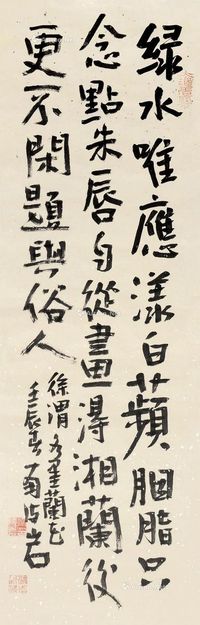 绿水唯應漾白蘋胭脂只
念點朱唇自從畫得湘蘭後
更不閑題與俗人
徐渭水墨蘭花
壬辰春